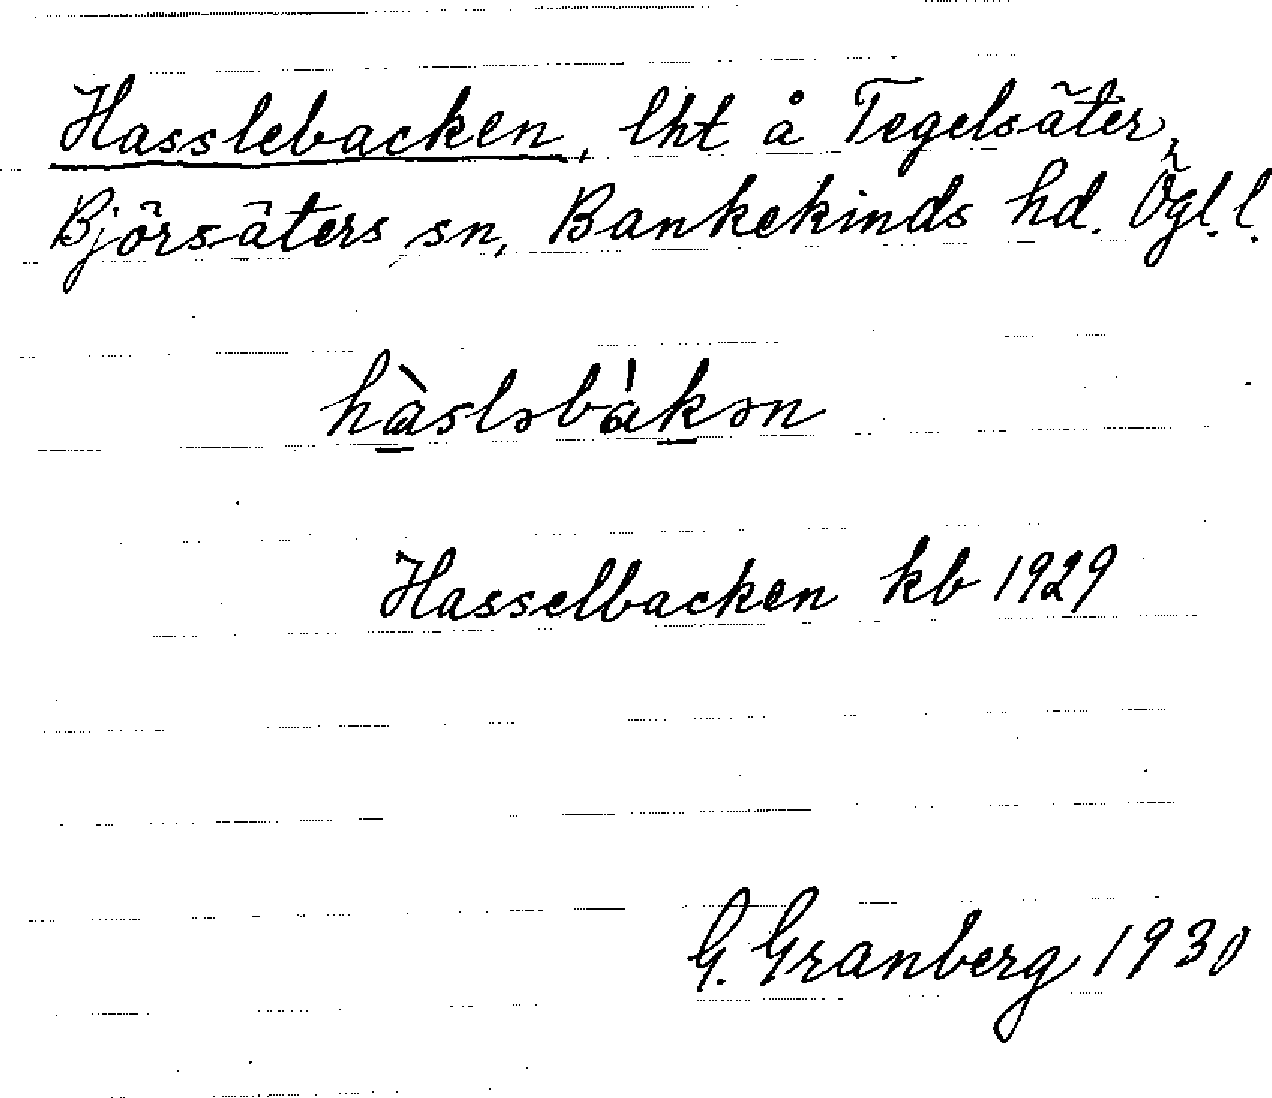 Hasslebacken, lht å Tegelsäter,
Björsäters sn, Bankekinds hd. Ögl. l.
hàsləbàkən
Hasselbacken kb 1929
G. Granberg 1930